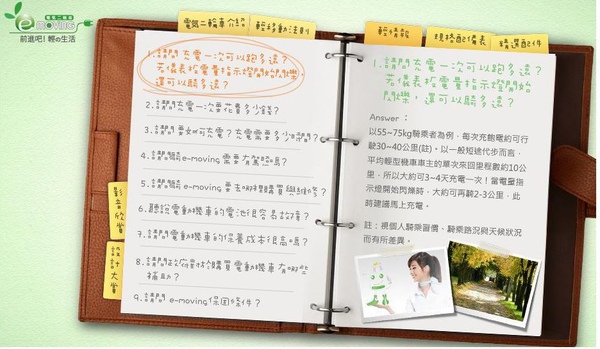 電動二輪車
e moving
前進吧!輕の生活
電動二輪車介紹
輕移動法則
輕情報
規格配備表
精選配件
1.請問充電一次可以跑多遠?
若儀表板電量指示燈開始閃爍,
還可以騎多遠?
2.請問充電一次要花費多少錢?
3.請問要如何充電?充電需要多少時間?
4.請問騎e-moving需要有駕照嗎?
5.請問e-moving要去哪裡購買與維修?
6.聽說電動機車的電池很容易故障?
7.請問電動機車的保養成本很高嗎?
8.請問政府對於購買電動機車有哪些
補助?
9.請問e-moving保固條件?
影音欣賞
設計大賞
1.請問充電一次可以跑多遠?
若儀表板電量指示燈開始
閃爍,還可以騎多遠?
Answer :
以55~75kg騎乘者為例,每次充飽電約可行
駛30~40公里(註)。以一般短途代步而言,
平均輕型機車車主的單次來回里程數約10公
里,所以大約可3~4天充電一次!當電量指
示燈開始閃爍時,大約可再騎2-3公里,此
時建議馬上充電。
註:視個人騎乘習慣、騎乘路況與天候狀況
而有所差異。